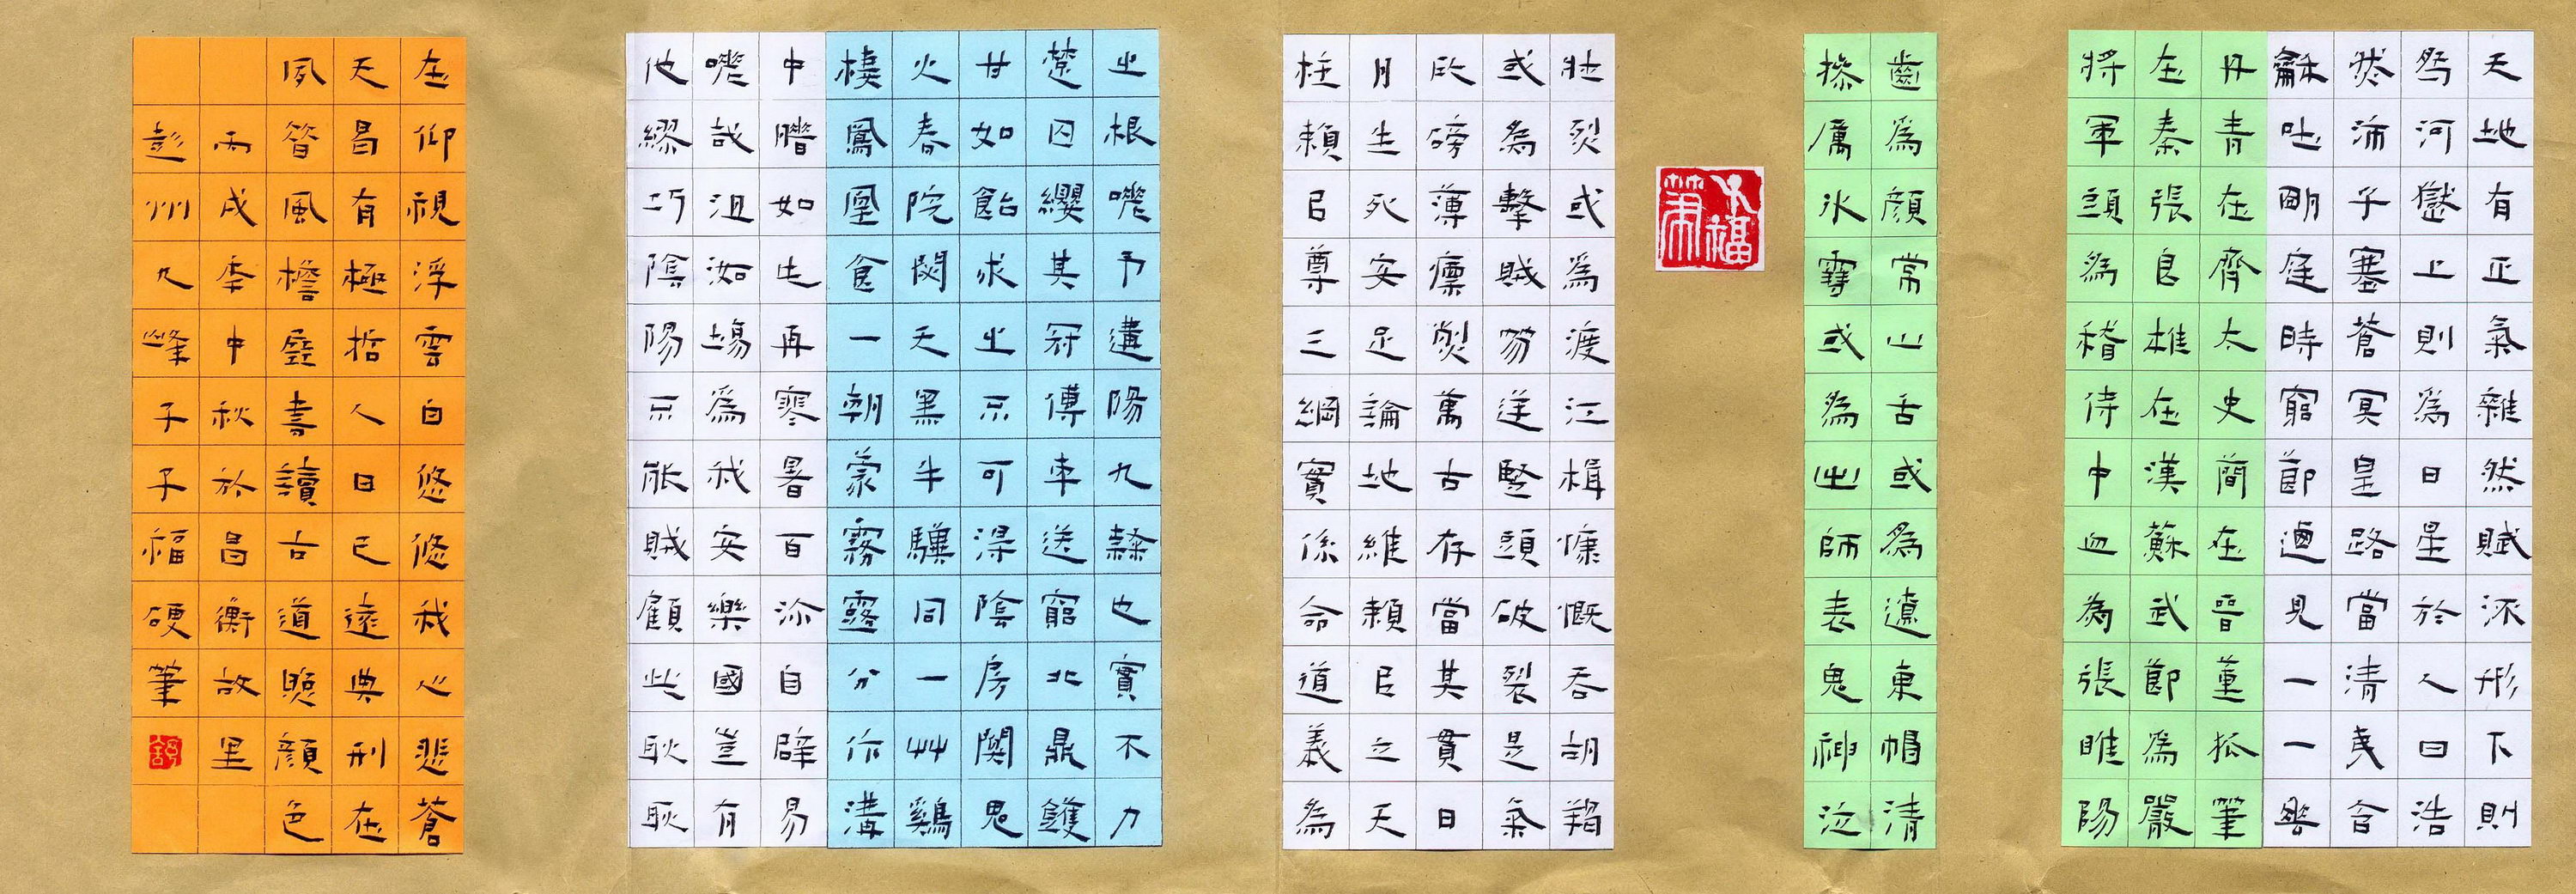 天地有正氣雜然賦流形下則
為河嶽上則為日星於人曰浩
然沛乎塞蒼冥皇路當清夷含
龢吐明庭時窮節迺見一一垂
丹青在齊太史簡在晉董狐筆
在秦張良椎在漢蘇武節為嚴
將軍頭為稽侍中血為張睢陽
齒為顏常山舌或為遼東帽清
操厲冰雪或為出師表鬼神泣
壯烈或為渡江楫慷慨吞胡羯
或為擊賊笏逆豎頭破裂是氣
所磅薄凜烈萬古存當其貫日
月生死安足論地維賴以立天
柱賴以尊三綱實係命道義為
之根嗟予遘陽九隸也實不力
楚囚纓其冠傳車送窮北鼎鑊
甘如飴求之不可得陰房闃鬼
火春院閟天黑牛驥同一艸雞
棲鳳凰食一朝蒙霧露分作溝
中瘠如此再寒暑百沴自辟易
嗟哉沮洳場為我安樂國豈有
他繆巧陰陽不能賊顧此耿耿
在仰視浮雲白悠悠我心悲蒼
天曷有極哲人日已遠典刑在
夙昔風檐展書讀古道照顏色
丙戌季中秋於昌衡故里
彭州九峰子子福硬筆